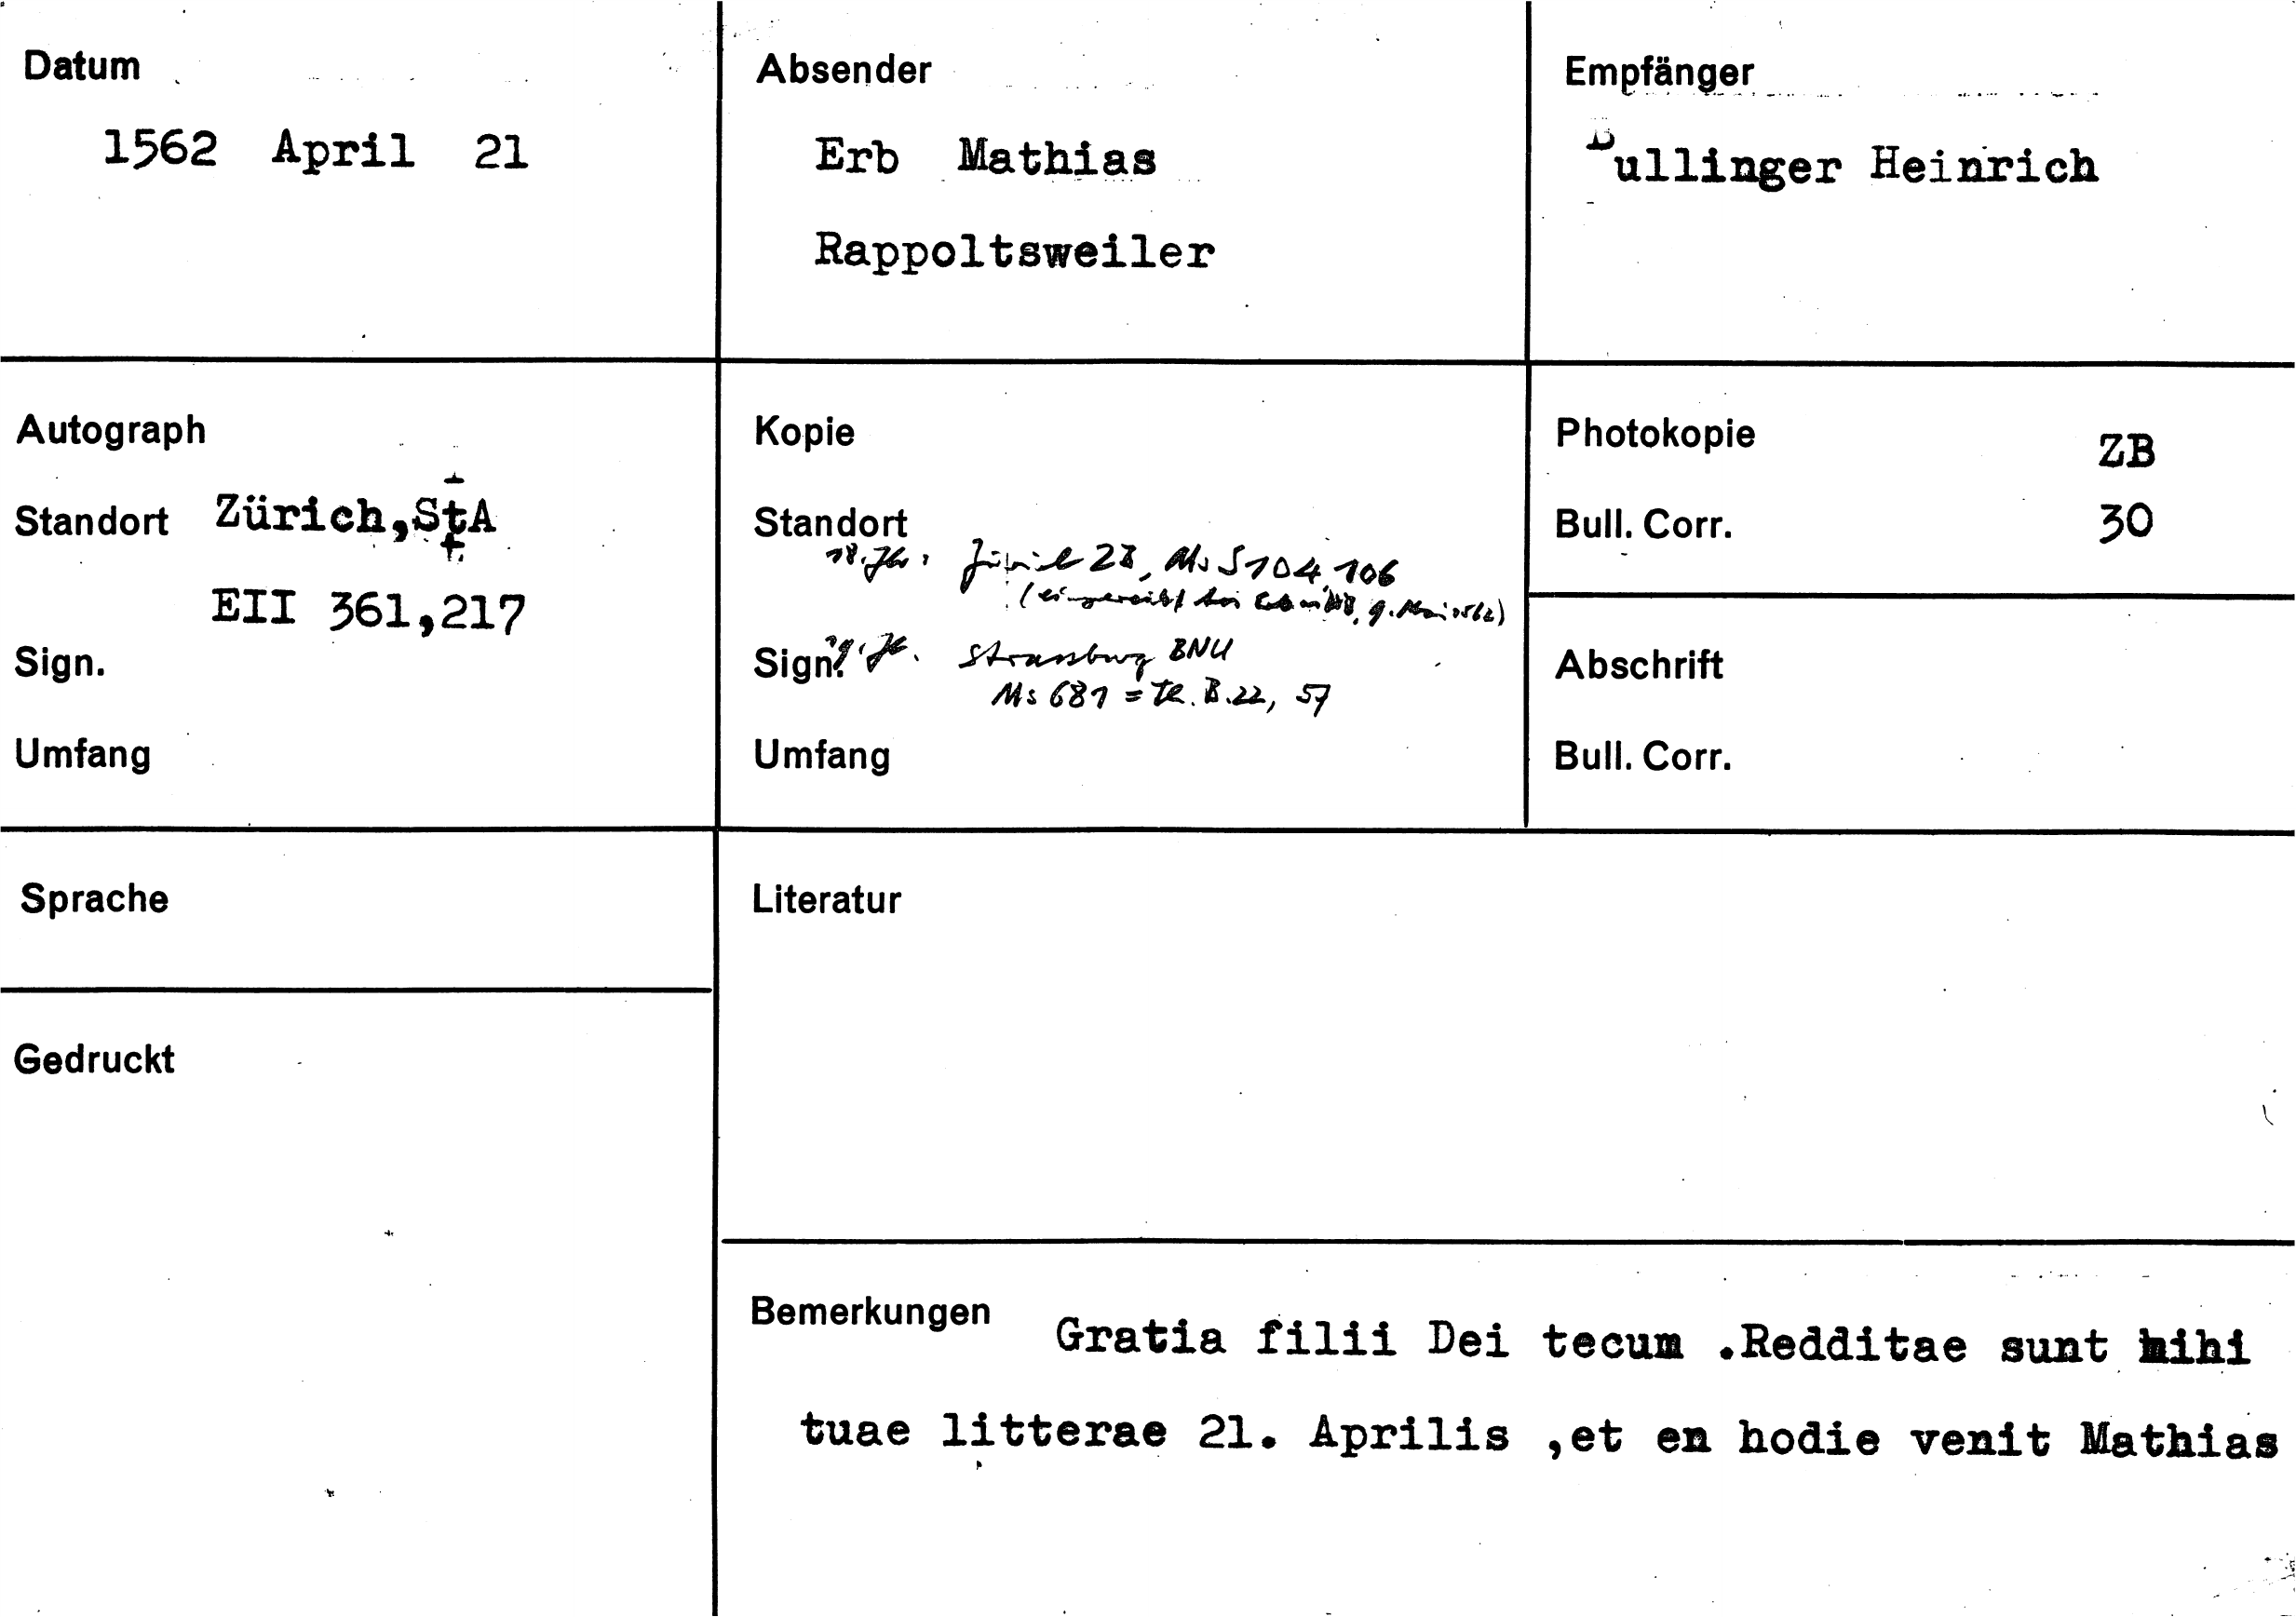 Datum
1562 April 21
Absender
Erb Mathias
Rappoltsweiler
Empfänger
Bullinger Heinrich
Autograph
Standort Zürich,StA
EII 361,217
Sign.
Umfang
Kopie
Standort
18. Jh. Zürich ZB, Ms S 104, 106
(eingereiht bei 9. Mai 1562)
Sign. 19. Jh. Strassburg BNU
Ms 681 = Th. B. 22, 57
Umfang
Photokopie ZB
Bull. Corr. 30
Abschrift
Bull. Corr.
Sprache
Gedruckt
Literatur
Bemerkungen Gratia filii Dei tecum .Redditae sunt mihi
tuae litterae 21. Aprilis ,et en hodie venit Mathias